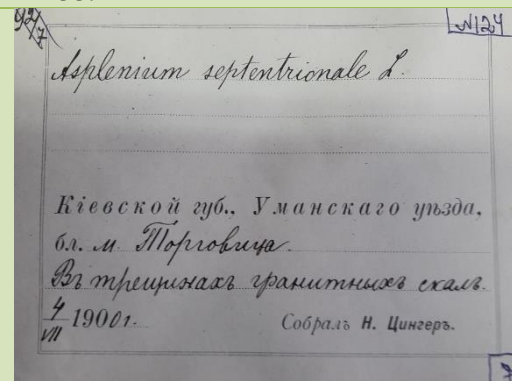 92/7
№124
Asplenium septentrionale L.
Кіевской губ., Уманскаго уѣзда,
бл. м. Торговица.
Въ трещинахъ гранитныхъ скалъ.
4/VII 1900 г.
Собралъ Н. Цингеръ.